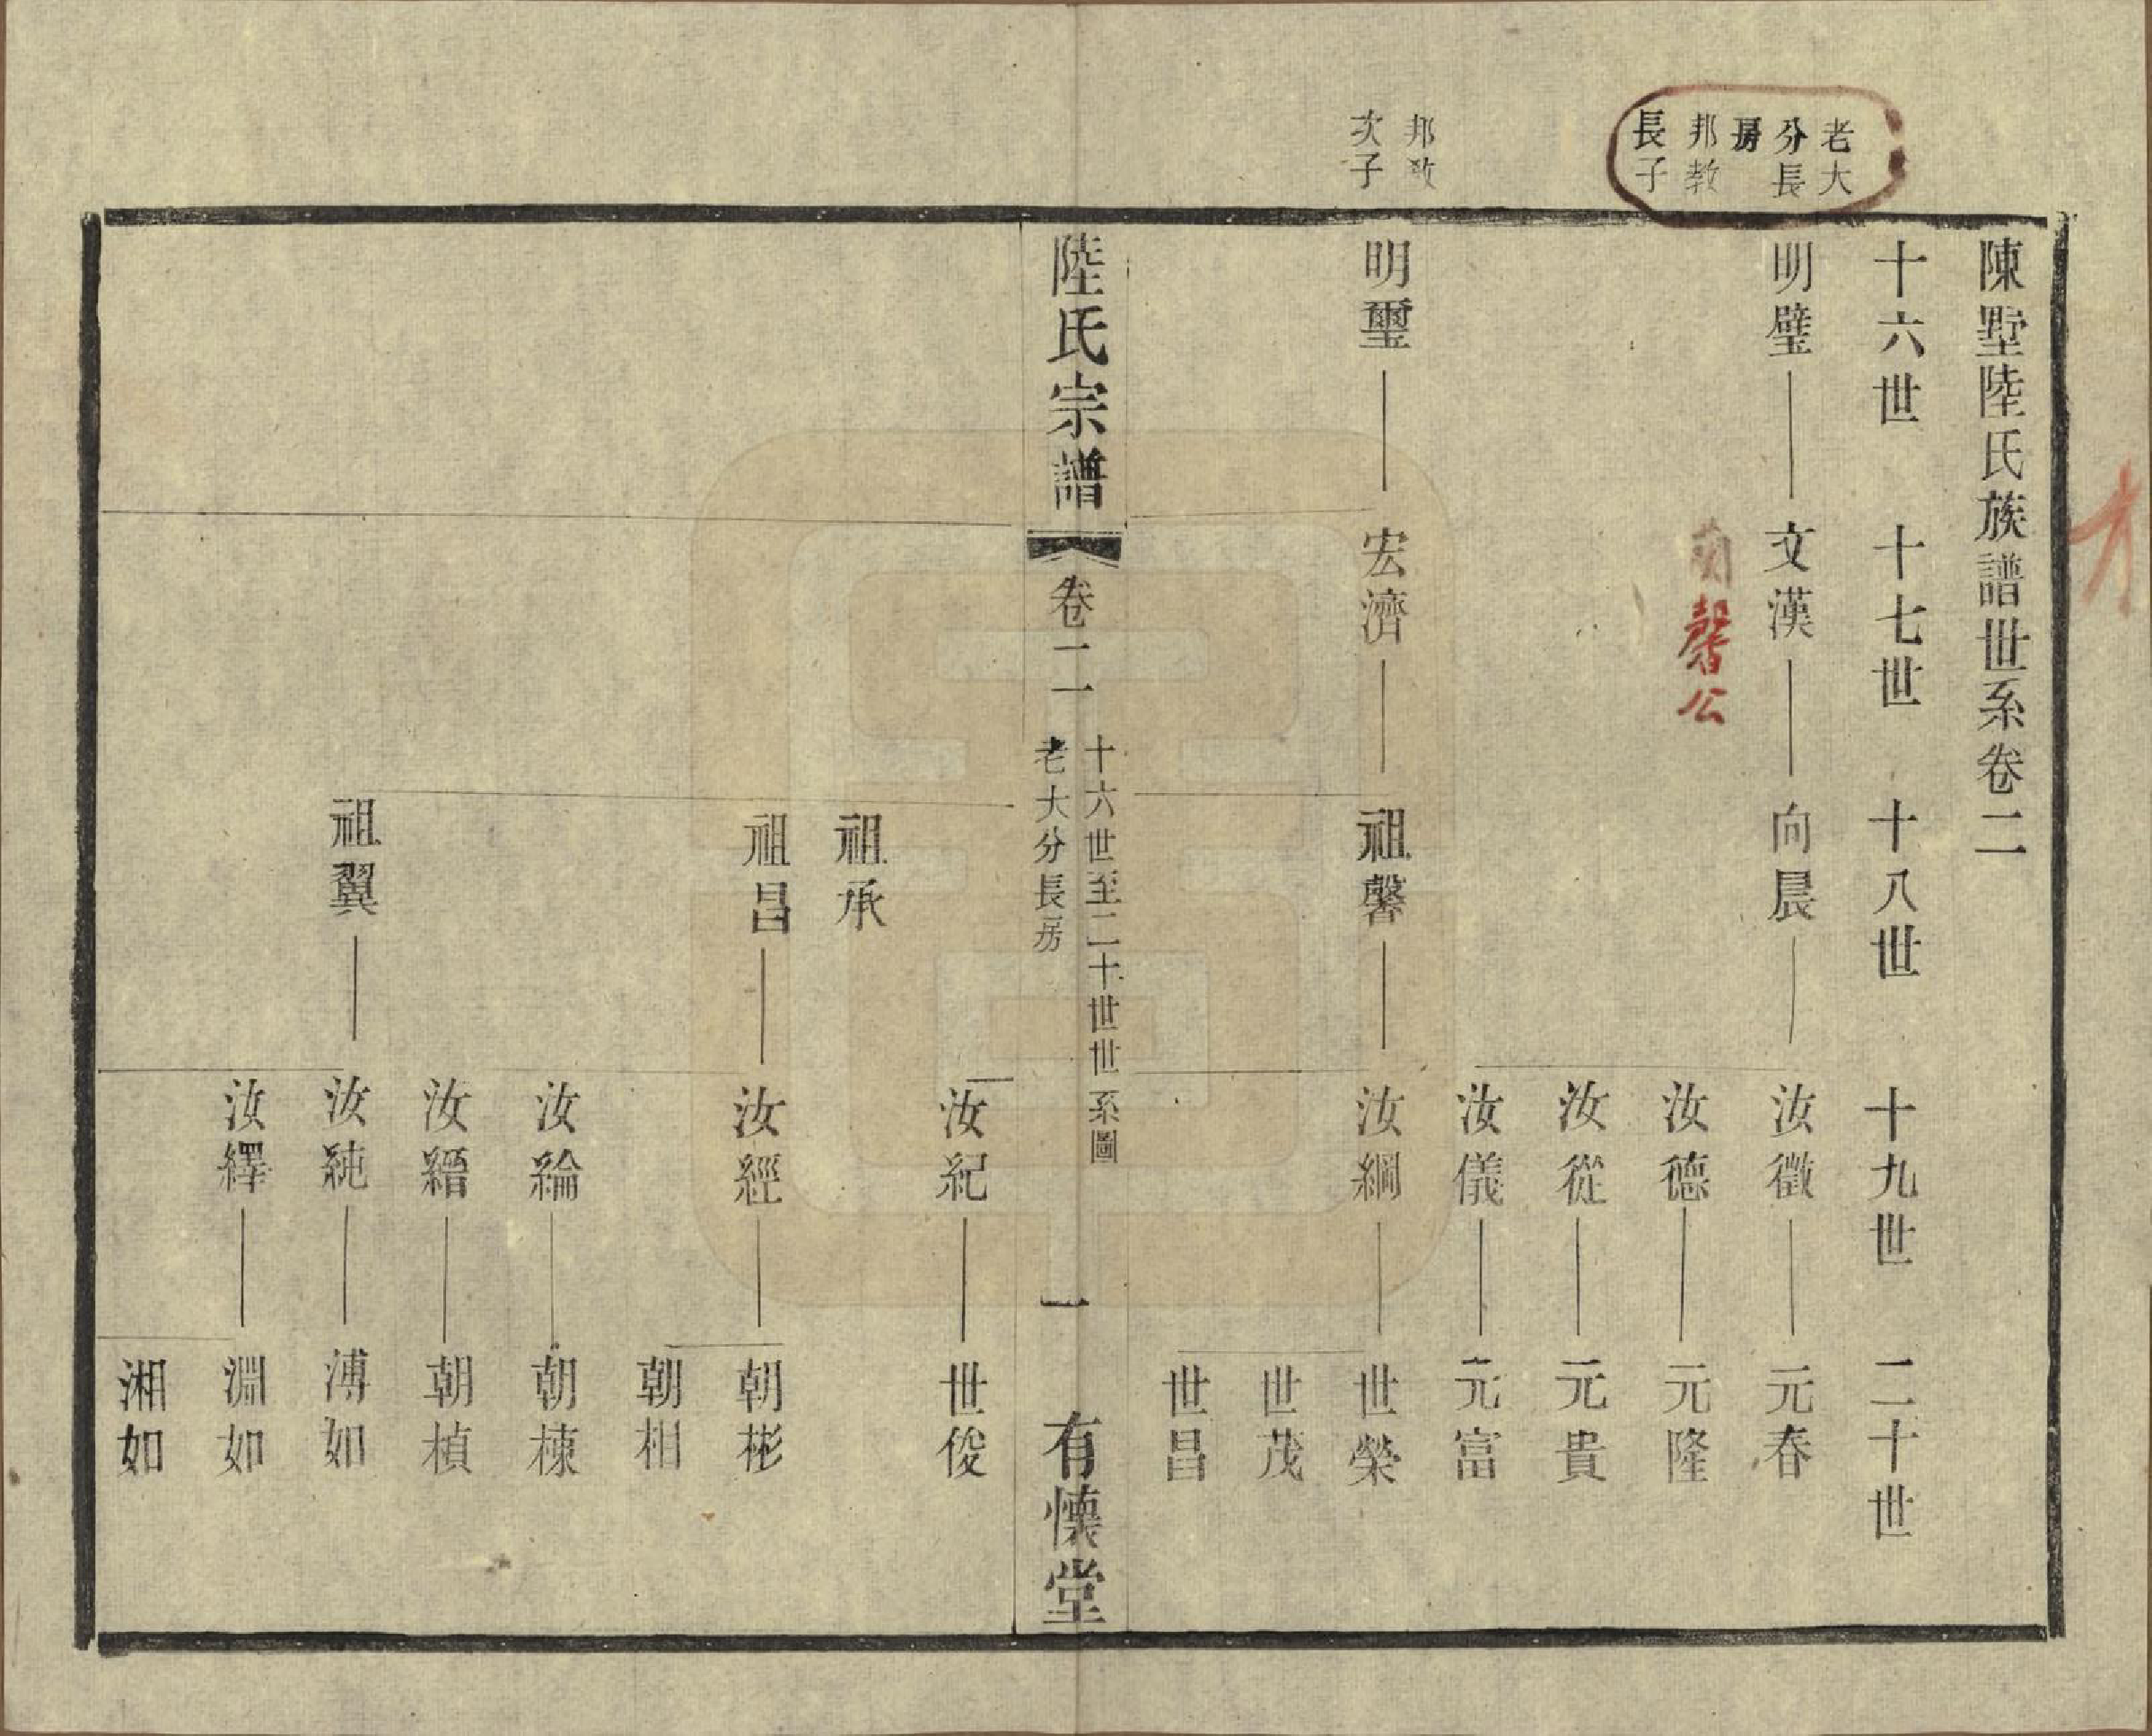 陳墅陸氏族譜世系卷二
十六世　十七世　十八世　十九世　二十世
老大
分長
房
邦教
長子
明璧　文漢　向晨　汝徵　元春
馨公
汝德　元隆
汝從　元貴
汝儀　元富
邦教
次子
明璽　宏濟　祖馨　汝綱　世榮
世茂
世昌
陸氏宗譜　卷二　十六世至二十世世系圖
老大分長房
一　有懷堂
汝紀　世俊
祖承
祖昌　汝經　朝彬
朝相
汝綸　朝棟
汝縉　朝楨
祖翼　汝純　溥如
汝繹　淵如
湘如